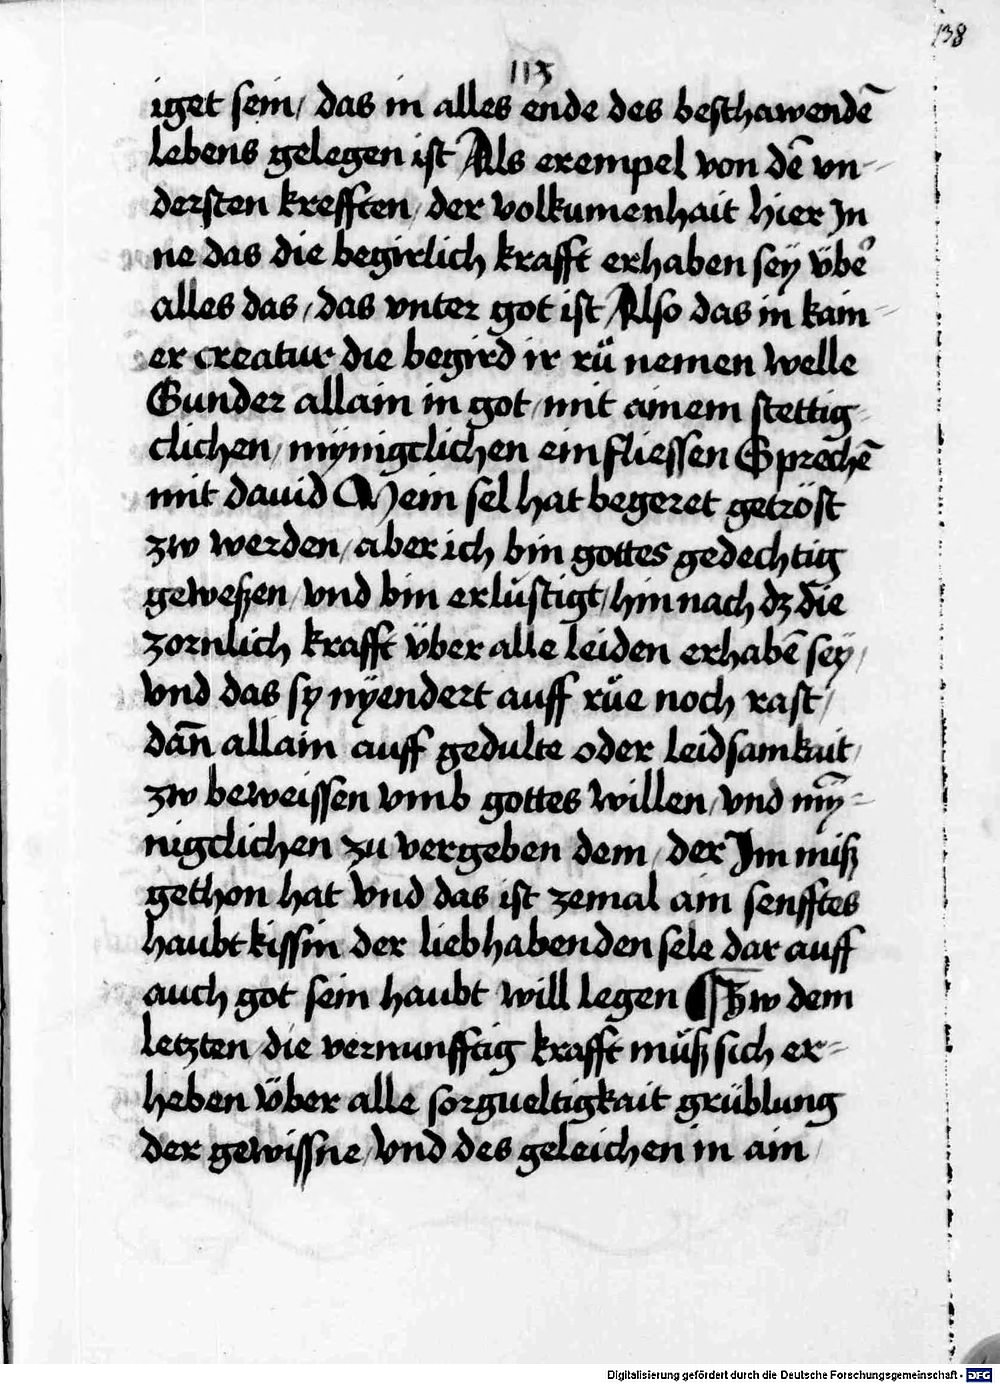 138
113
iget sein/ das in alles ende des beschawendē
lebens gelegen ist Als exempel von dē vn-
dersten krefften/ der volkumenhait hier Jn
ne das die begirlich krafft erhaben seÿ vͤbeʾ
alles das/ das vnter got ist Also das in kain-
er creatur die begird ir rů nemen welle
Sunder allain in got/ mit ainem stettig-
clichen/ mÿnigclichen einfliessen Sprechē
mit dauid Mein sel hat begeret getröst
zw werden/ aber ich bin gottes gedechtig
geweßen/ vnd bin erlustigt/ hin nach dz die
zornlich krafft vͤber alle leiden erhabē seÿ/
vnd das sy nÿendert auff rüe noch rast/
dañ allain auff gedulte oder leidsamkait/
zw beweissen vmb gottes willen/ vnd mÿ̄-
nigclichen zu vergeben dem/ der Jm miß
gethon hat vnd das ist zemal ain senfftes
haubtkissin der liebhabenden sele dar auff
auch got sein haubt will legen ¶ Zw dem
letzten die vernunfftig krafft můß sich er-
heben vͤber alle sorgueltigkait grüblung
der gewissne/ vnd des geleichen in ain/
Digitalisierung gefördert durch die Deutsche Forschungsgemeinschaft - DFG